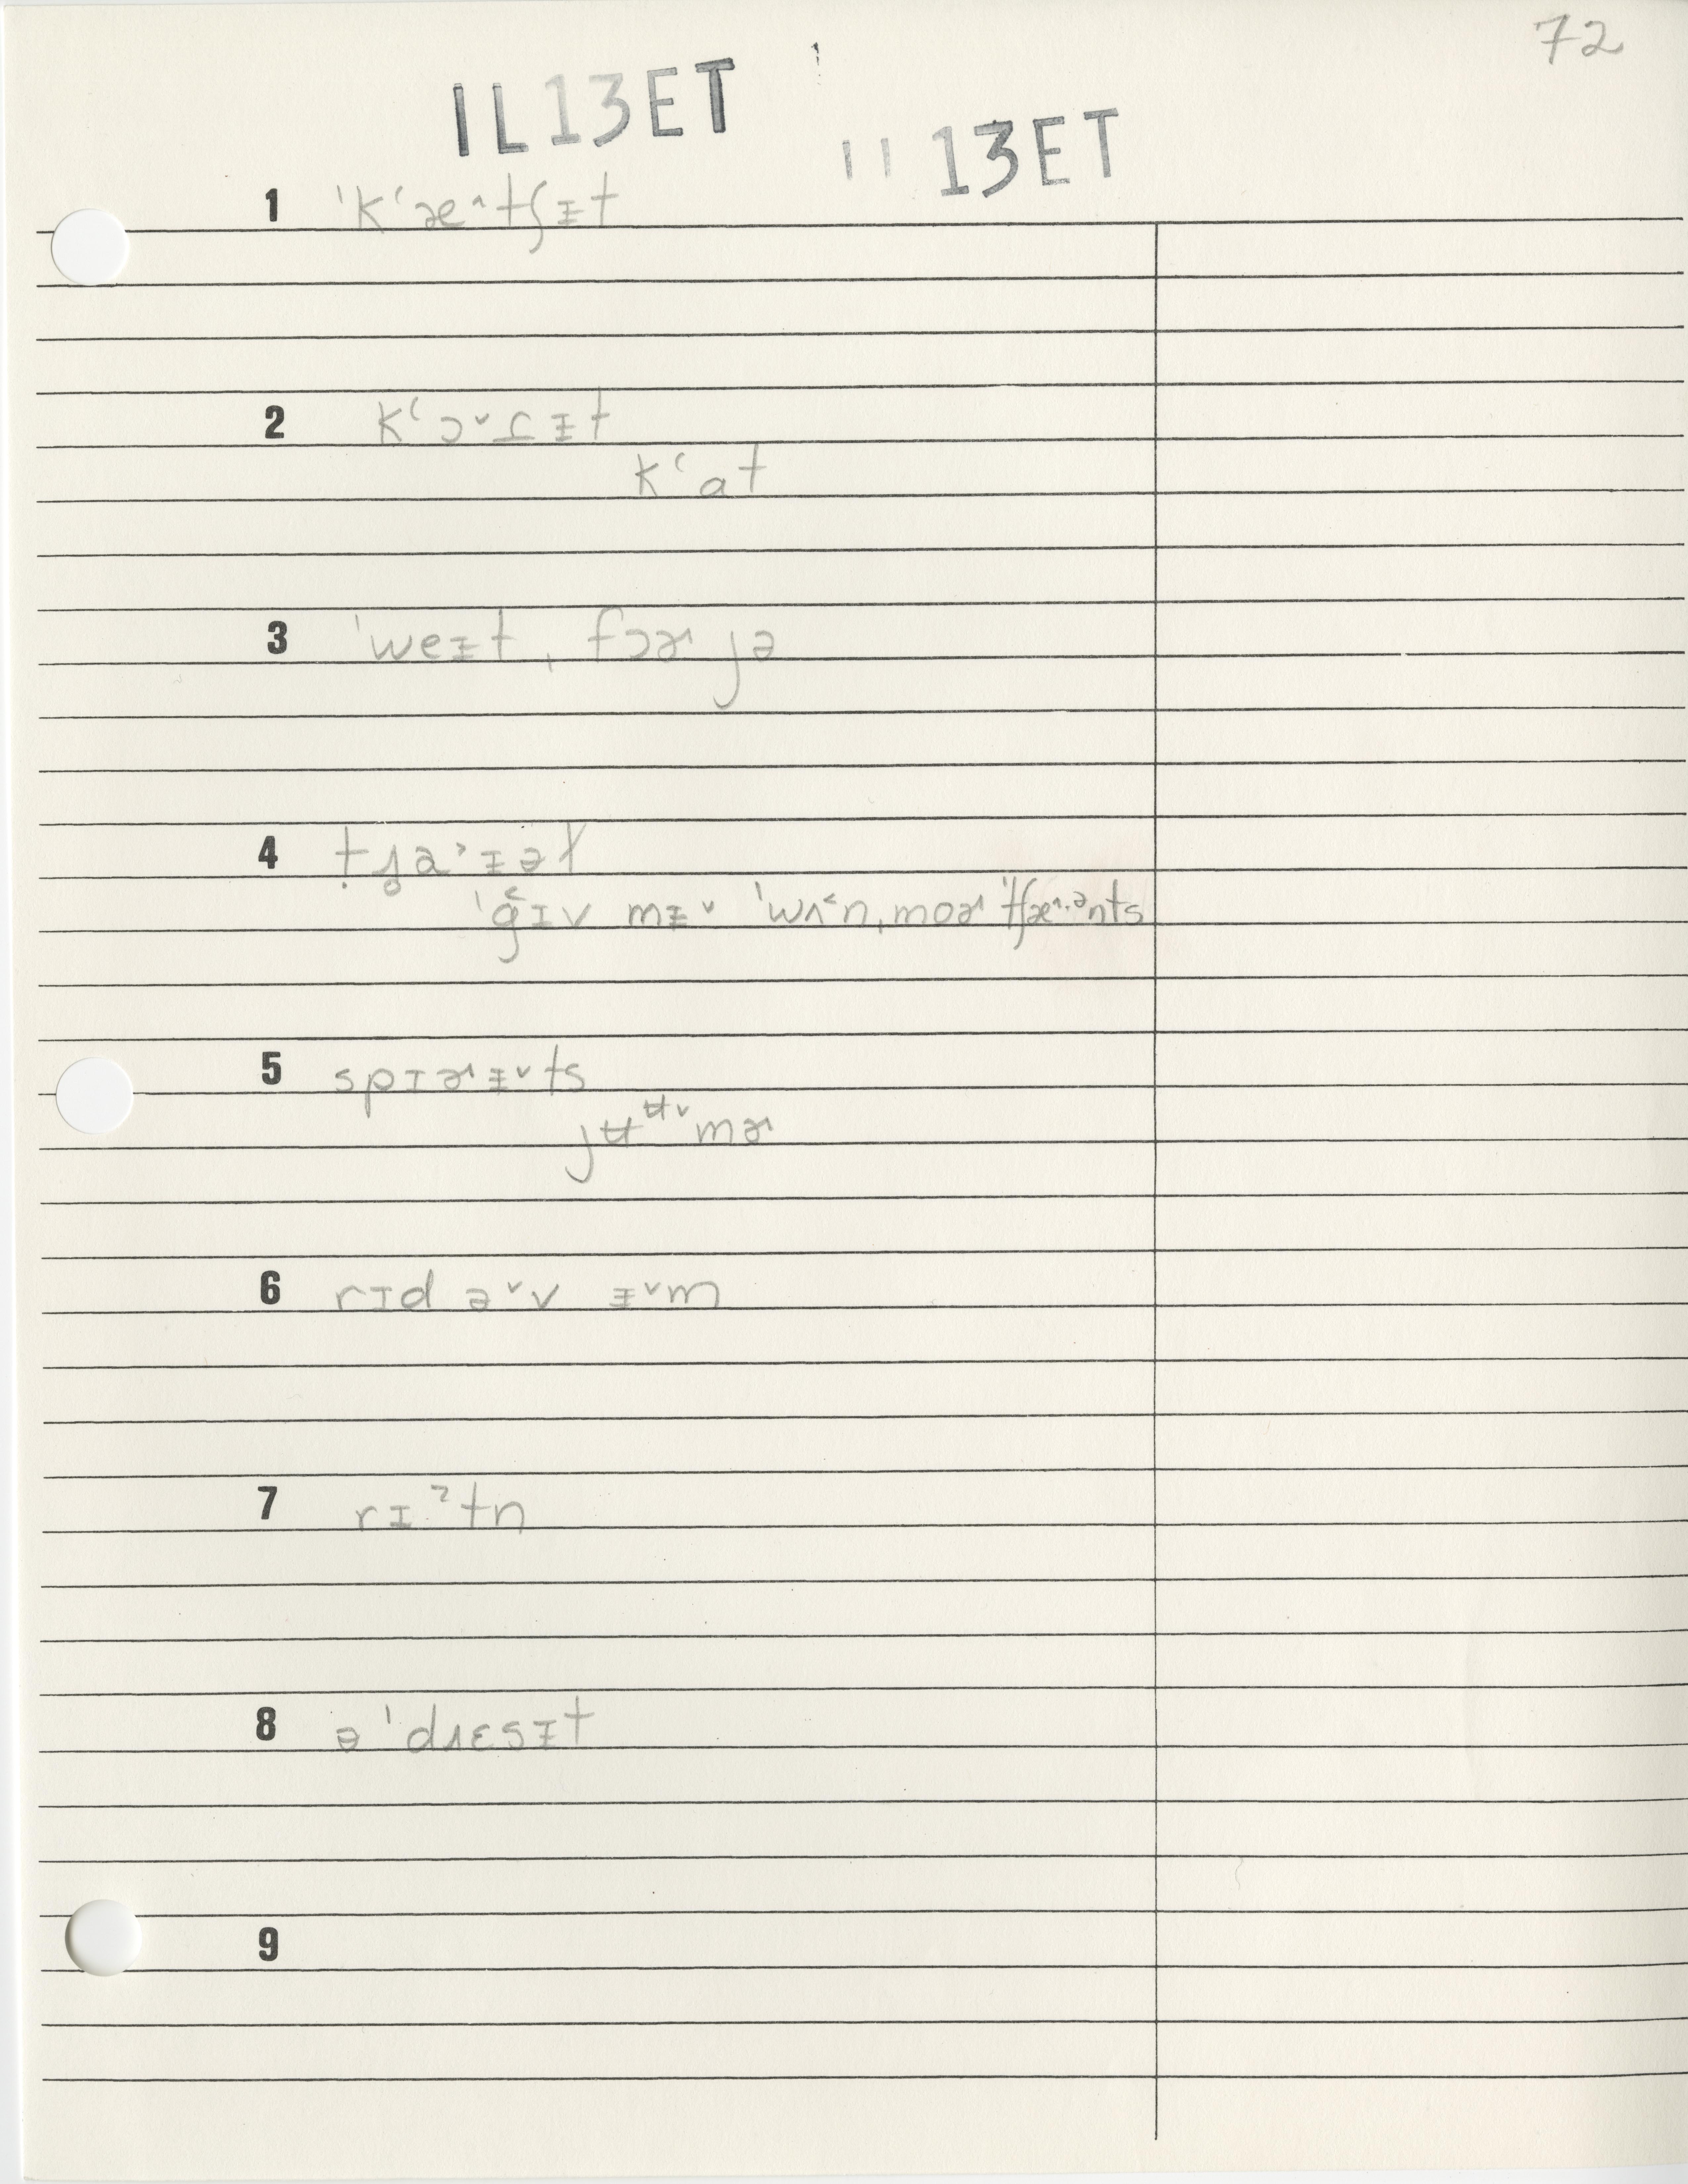 72
IL13ET
II13ET
1 ˈkʻæ^tʃɪ̵t
2 kʻɔˇɾɪ̵t
kʻat
3 ˈweɪ̵t ˌfɔɚ jə
4
ˈɡ̆ɪv mɪ̵ˇ ˈwʌ˂nˌmoɚ ˈtʃæ^·ᵊnts
5 spɪɚɪ̵ˇts
jʉᶶˇmɚ
6 rɪd əˇv ɪ̵ˇm
7 rɪˀtn
8 əˈdɹɛsɪ̵t
9